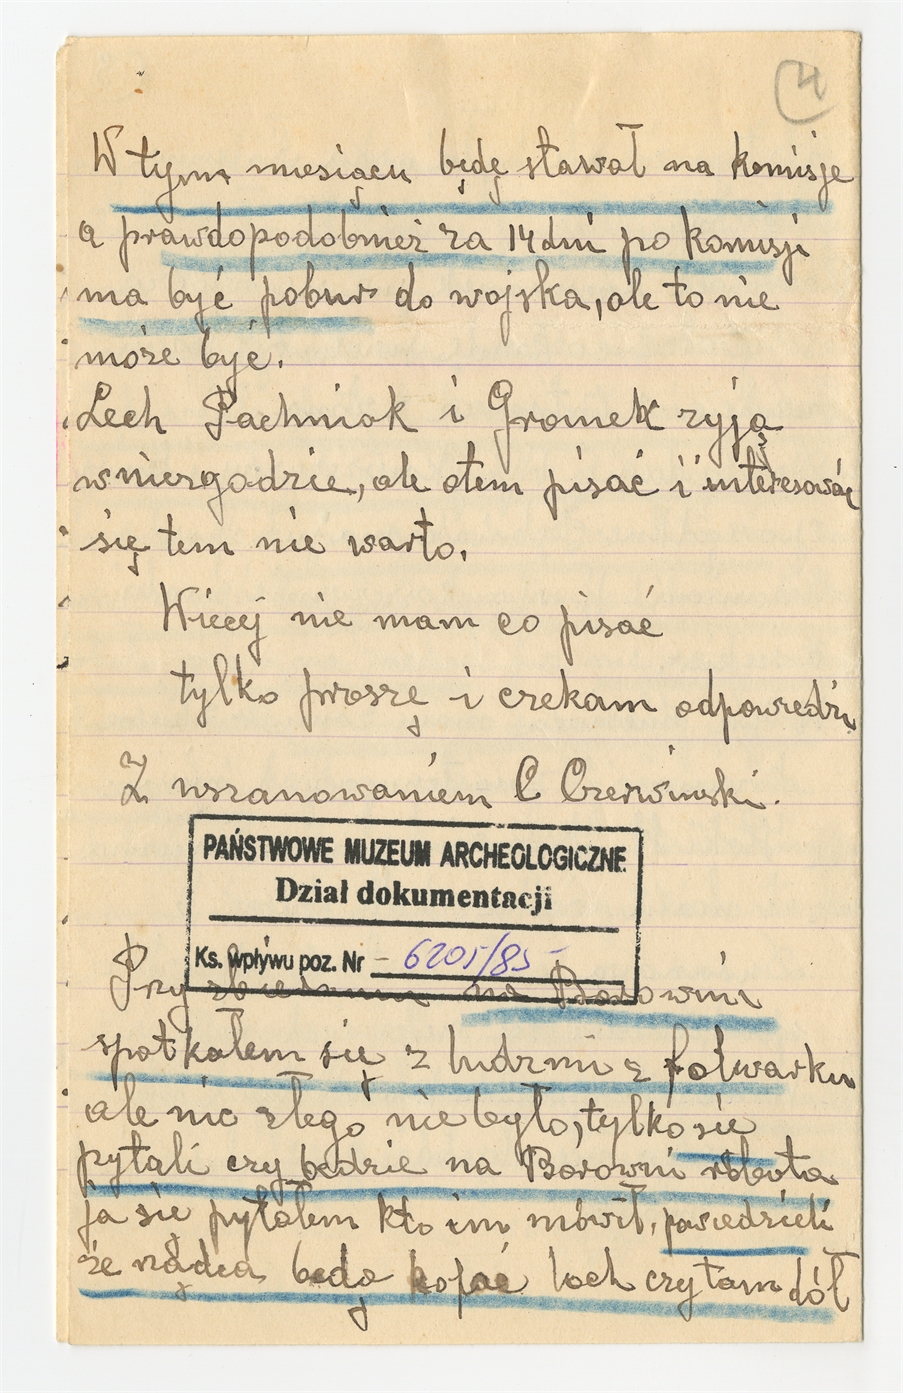 4
W tym miesiącu będę stawał na komisje
a prawdopodobnież za 14 dni po komisji
ma być pobur do wojska, ale to nie
może być.
Lech Pachniok i Gromek zyją
w niezgodzie, ale otem pisać i interesować
się tem nie warto.
Wicej nie mam co pisać
tylko proszę i czekam odpowiedzi
Z uszanowaniem C Czerwinski.
PAŃSTWOWE MUZEUM ARCHEOLOGICZNE
Dział dokumentacji
Ks. wpływu poz. Nr - 6205/85 -
Przy zbieraniu na Borowni
spotkałem się z ludzmi z folwarku
ale nic złego nie było, tylko sie
pytali czy bedzie na Borowni robota
ja się pytałem kto im mówił, powiedzieli
że rządca bedą kopać loch czy tam dół